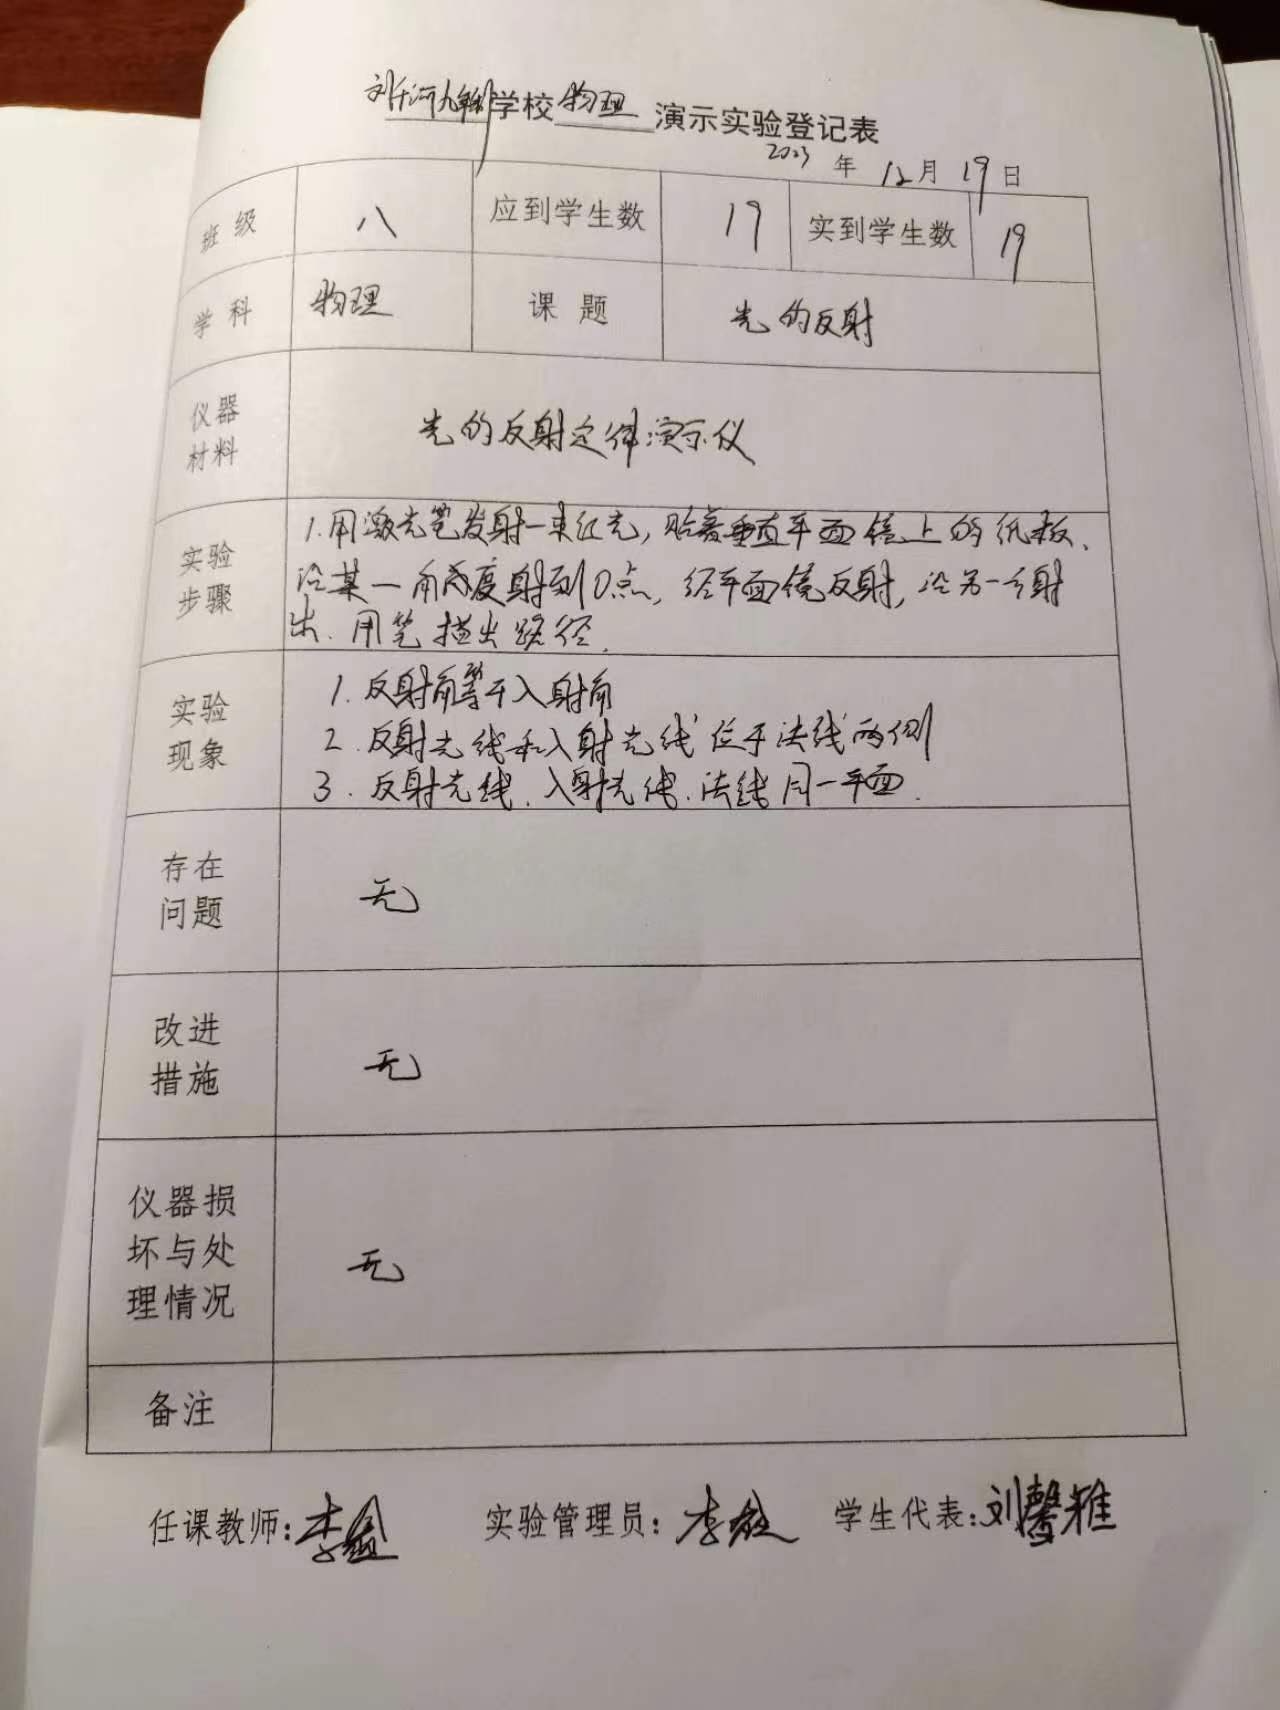 刘千河九年制学校 物理 演示实验登记表
2023 年 12 月 19 日
班级 八 应到学生数 19 实到学生数 19
学科 物理 课题 光的反射
仪器
材料
光的反射定律演示仪
实验
步骤
1.用激光笔发射一束红光,贴着垂直平面镜上的纸板、
沿某一角度射到O点,经平面镜反射,沿另一方射
出.用笔描出路径.
实验
现象
1.反射角等于入射角
2.反射光线和入射光线位于法线两侧
3.反射光线.入射光线.法线同一平面.
存在
问题
无
改进
措施
无
仪器损
坏与处
理情况
无
备注
任课教师: 李 实验管理员: 李 学生代表: 刘馨雅